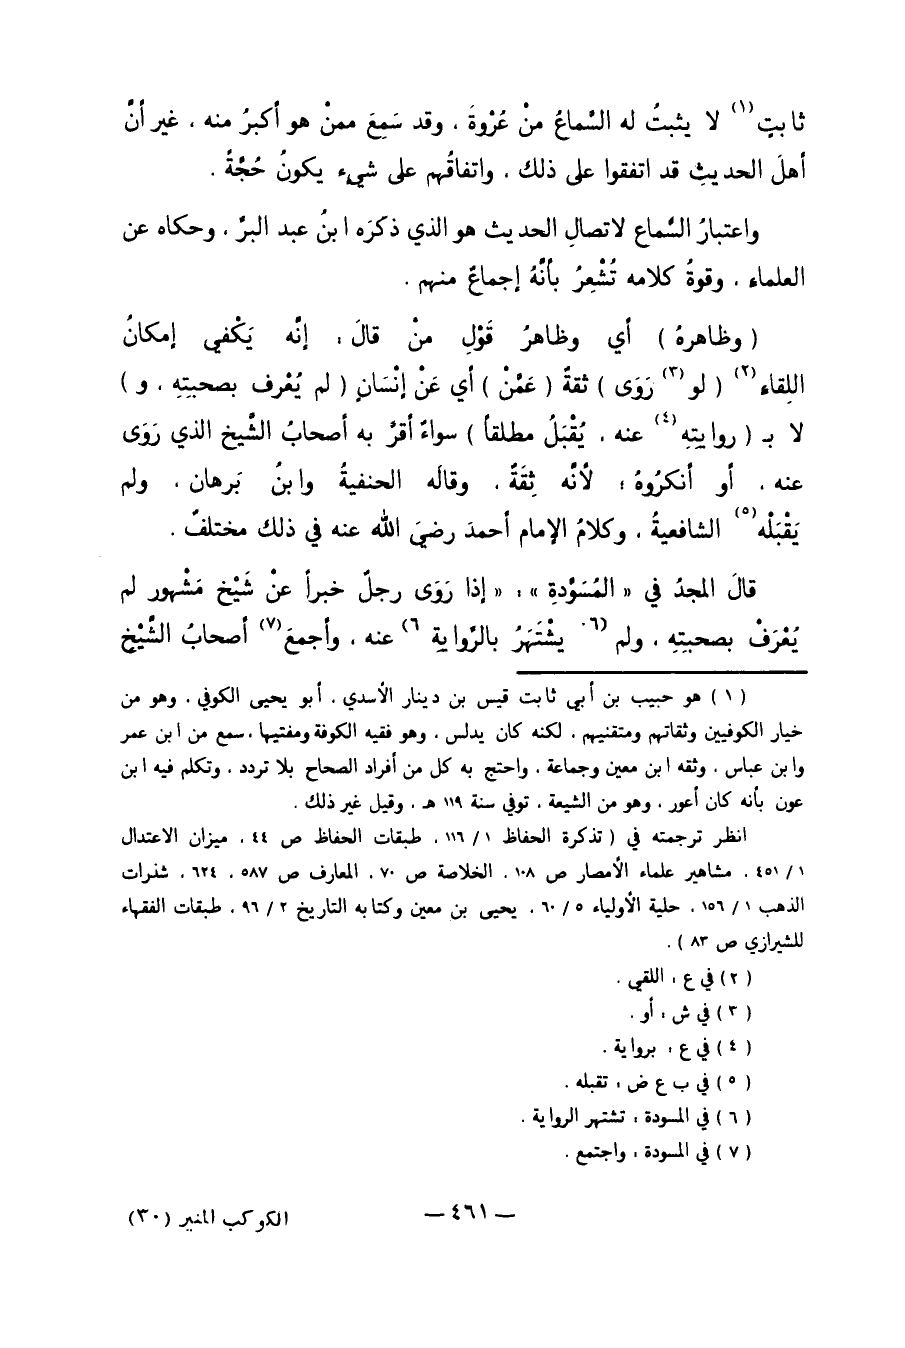 ثابتٍ(١) لا يثبتُ له السَّماعُ منْ عُرْوةَ ، وقد سَمِعَ ممنْ هو أكبرُ منه ، غير أنَّ
أهلَ الحديثِ قد اتفقوا على ذلك ، واتفاقُهم على شيء يكونُ حُجَّةً .
واعتبارُ السَّماع لاتصالِ الحديث هو الذي ذكرَه ابنُ عبد البرِّ ، وحكاه عن
العلماء ، وقوةُ كلامه تُشْعِرُ بأنَّهُ إجماعٌ منهم .
( وظاهرهُ ) أي وظاهرُ قَوْلِ منْ قالَ : إنَّه يَكْفي إمكانُ
اللقاء(٢) ( لو(٣) رَوَى ) ثقةٌ ( عَمَّنْ ) أي عَنْ إنْسَانٍ ( لم يُعْرف بصحبتِهِ ، و )
لا بـ ( روايتِهِ(٤) عنه ، يُقْبَلُ مطلقاً ) سواءٌ أقرَّ به أصحابُ الشَّيخ الذي رَوَى
عنه ، أو أنكرُوهُ ؛ لأنَّه ثِقَةٌ ، وقالَه الحنفيةُ وابنُ بَرهان ، ولم
يَقْبَلْه(٥) الشافعيةُ ، وكلامُ الإمام أحمدَ رضيَ الله عنه في ذلك مختلفٌ .
قالَ المجدُ في « المُسَوَّدةِ » : « إذا رَوَى رجلٌ خبراً عنْ شَيْخ مَشْهور لم
يُعْرَفْ بصحبتِهِ ، ولم (٦ يشْتَهَرُ بالرِّوايةِ ٦) عنه ، وأجمعَ(٧) أصحابُ الشَّيْخِ
( ١ ) هو حبيب بن أبي ثابت قيس بن دينار الأسدي ، أبو يحيى الكوفي ، وهو من
خيار الكوفيين وثقاتهم ومتقنيهم ، لكنه كان يدلس ، وهو فقيه الكوفة ومفتيها ، سمع من ابن عمر
وابن عباس ، وثقه ابن معين وجماعة ، واحتج به كل من أفراد الصحاح بلا تردد ، وتكلم فيه ابن
عون بأنه كان أعور ، وهو من الشيعة ، توفي سنة ١١٩ هـ ، وقيل غير ذلك .
انظر ترجمته في ( تذكرة الحفاظ ١ / ١١٦ ، طبقات الحفاظ ص ٤٤ ، ميزان الاعتدال
١ / ٤٥١ ، مشاهير علماء الأمصار ص ١٠٨ ، الخلاصة ص ٧٠ ، المعارف ص ٥٨٧ ، ٦٢٤ ، شذرات
الذهب ١ / ١٥٦ ، حلية الأولياء ٥ / ٦٠ ، يحيى بن معين وكتابه التاريخ ٢ / ٩٦ ، طبقات الفقهاء
للشيرازي ص ٨٣ ) .
( ٢ ) في ع : اللقي .
( ٣ ) في ش : أو .
( ٤ ) في ع : برواية .
( ٥ ) في ب ع ض : تقبله .
( ٦ ) في المسودة : تشتهر الرواية .
( ٧ ) في المسودة : واجتمع .
— ٤٦١ —
الكوكب المنير (٣٠)